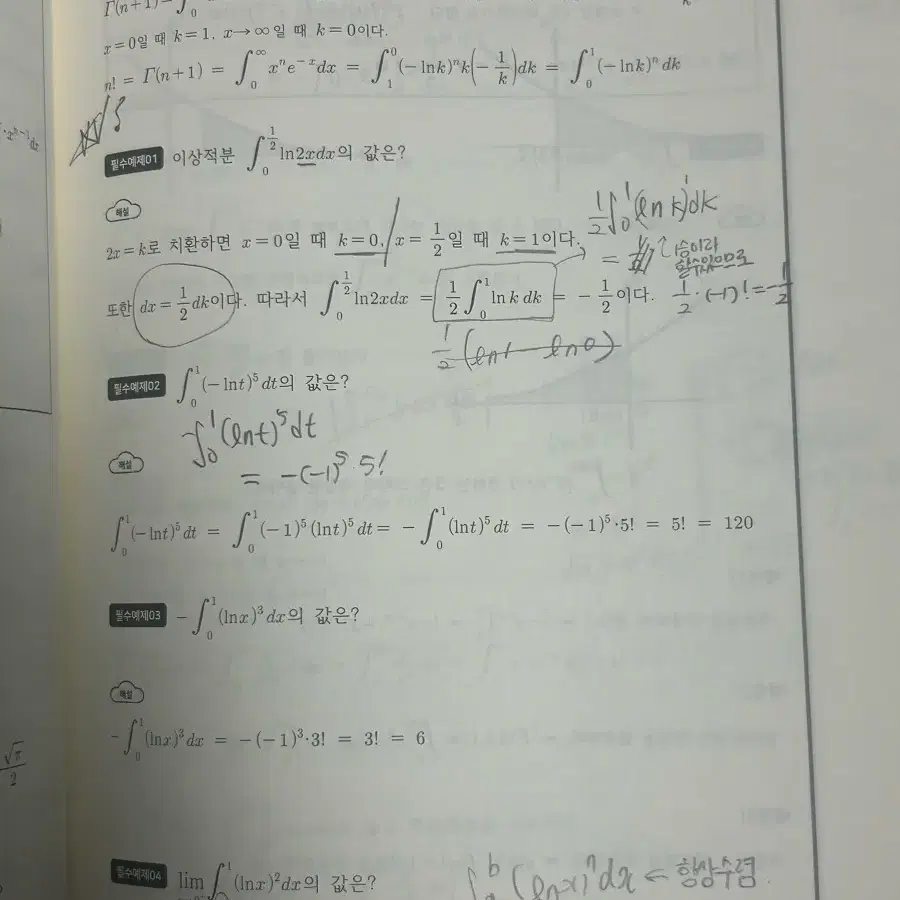 Γ(n+1)=∫₀
x=0일 때 k=1, x→∞일 때 k=0이다.
n! = Γ(n+1) = ∫₀^∞ xⁿe⁻ˣdx = ∫₁⁰ (−lnk)ⁿk(−1/k)dk = ∫₀¹ (−lnk)ⁿdk
필수예제01 이상적분 ∫₀^(1/2) ln2xdx의 값은?
해설
1/2∫₀¹(ln k)¹dk
2x=k로 치환하면 x=0일 때 k=0, x=1/2일 때 k=1이다.
또한 dx=1/2dk이다. 따라서 ∫₀^(1/2) ln2xdx = 1/2∫₀¹ lnk dk = −1/2이다.
1/2·(−1)!=−1/2
1/2(ln1 − ln0)
필수예제02 ∫₀¹(−lnt)⁵dt의 값은?
−∫₀¹(lnt)⁵dt
해설
= −(−1)⁵·5!
∫₀¹(−lnt)⁵dt = ∫₀¹(−1)⁵(lnt)⁵dt = −∫₀¹(lnt)⁵dt = −(−1)⁵·5! = 5! = 120
필수예제03 −∫₀¹(lnx)³dx의 값은?
해설
−∫₀¹(lnx)³dx = −(−1)³·3! = 3! = 6
필수예제04 lim∫¹(lnx)²dx의 값은?
∫ᵇ(lnx)ⁿdx ← 항상수렴
√π/2